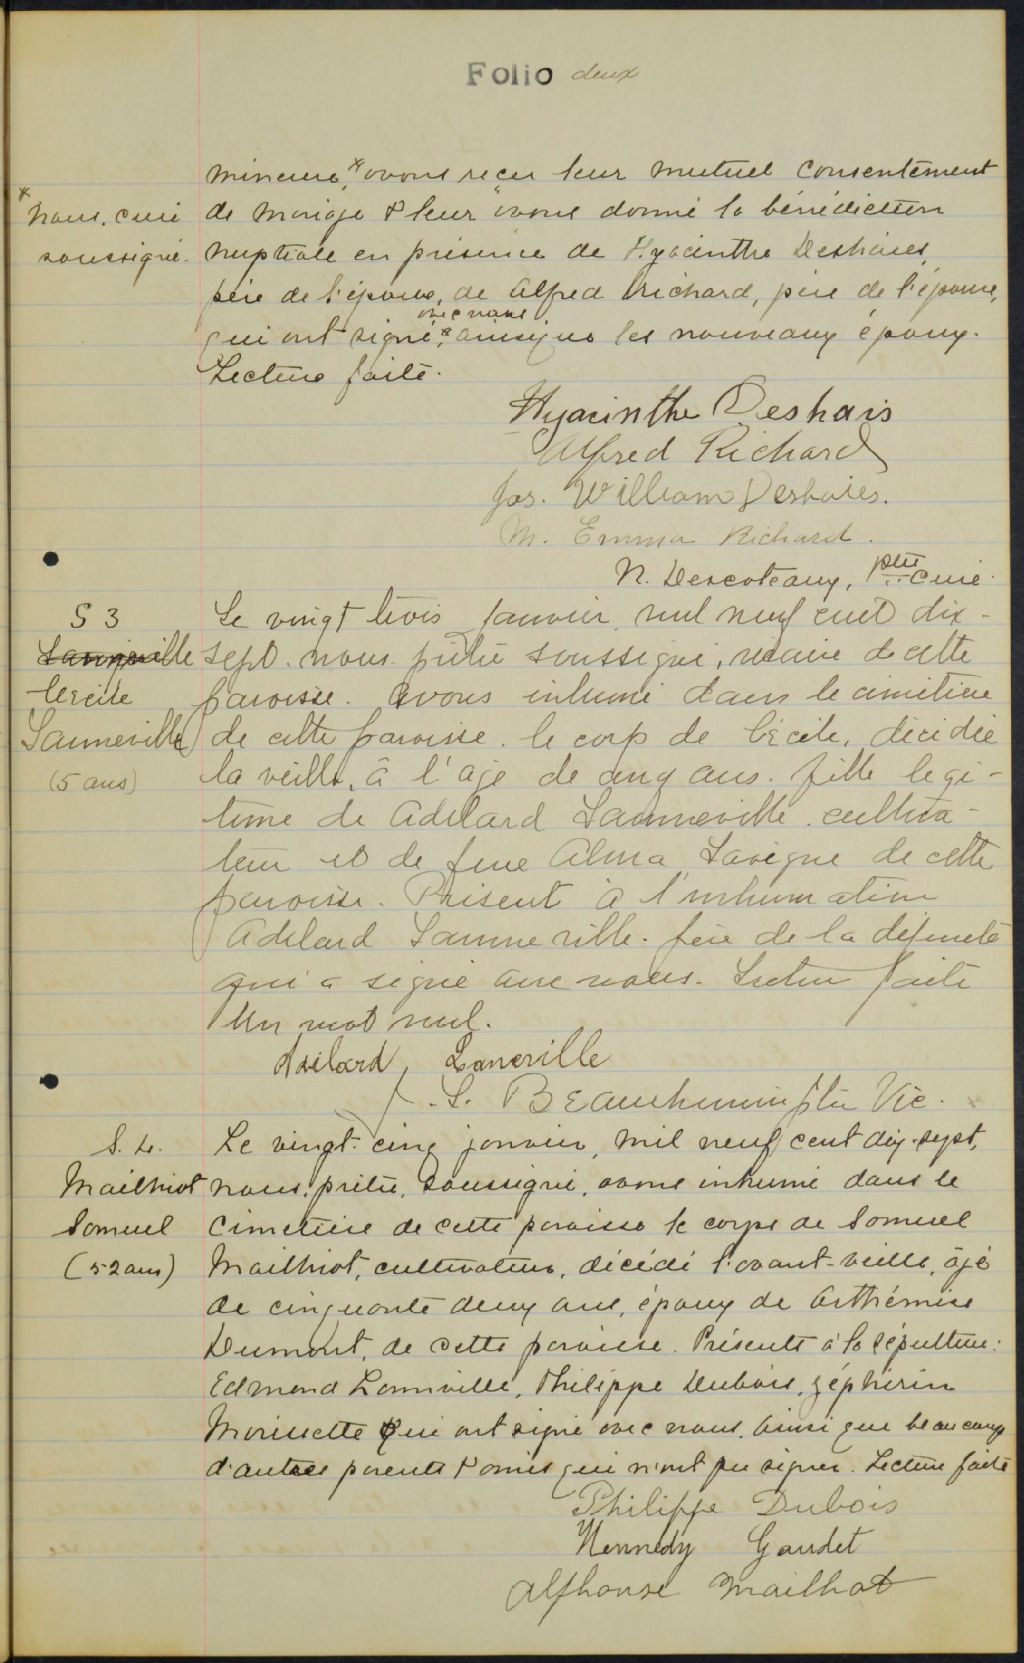 Folio deux
mineure,* avons reçu leur mutuel consentement
* Nous, curé soussigné.
de mariage & leur avons donné la bénédiction
nuptiale en présence de Hyacinthe Deshaies,
père de l'époux, de Alfred Richard, père de l'épouse,
avec nous
qui ont signé,* ainsi que les nouveaux époux.
Lecture faite.
Hyacinthe Deshais
Alfred Richard
Jos. William Deshaies.
M. Emma Richard.
N. Descoteaux, ptre curé.
S 3
Cécile
Lanneville
(5 ans)
Le vingt trois Janvier, mil neuf cent dix-
sept. nous prêtre soussigné, vicaire de cette
paroisse. avons inhumé dans le cimetière
de cette paroisse. le corp de Cécile, décédée
la veille, à l'age de cinq ans. fille legi-
time de Adelard Lanneville. cultiva-
teur et de feue Alma Lavigne de cette
paroisse. Présent à l'inhumation
Adelard Lanneville. père de la défunte
qui a signé avec nous. Lecture faite
Un mot nul.
Adelard Laneville
L. Beauchemin ptre Vic.
S. 4.
Mailhiot
Samuel
(52 ans)
Le vingt-cinq janvier, mil neuf cent dix-sept,
nous, prêtre, soussigné, avons inhumé dans le
cimetière de cette paroisse le corps de Samuel
Mailhiot, cultivateur, décédé l'avant-veille, âgé
de cinquante deux ans, époux de Arthémise
Dumont, de cette paroisse. Présents à la sépulture:
Edmond Lanneville, Philippe Dubois, Zéphirin
Morissette qui ont signé avec nous. Ainsi que beaucoup
d'autres parents & amis qui n'ont pu signer. Lecture faite
Philippe Dubois
Kennedy Gaudet
Alphonse Mailhot